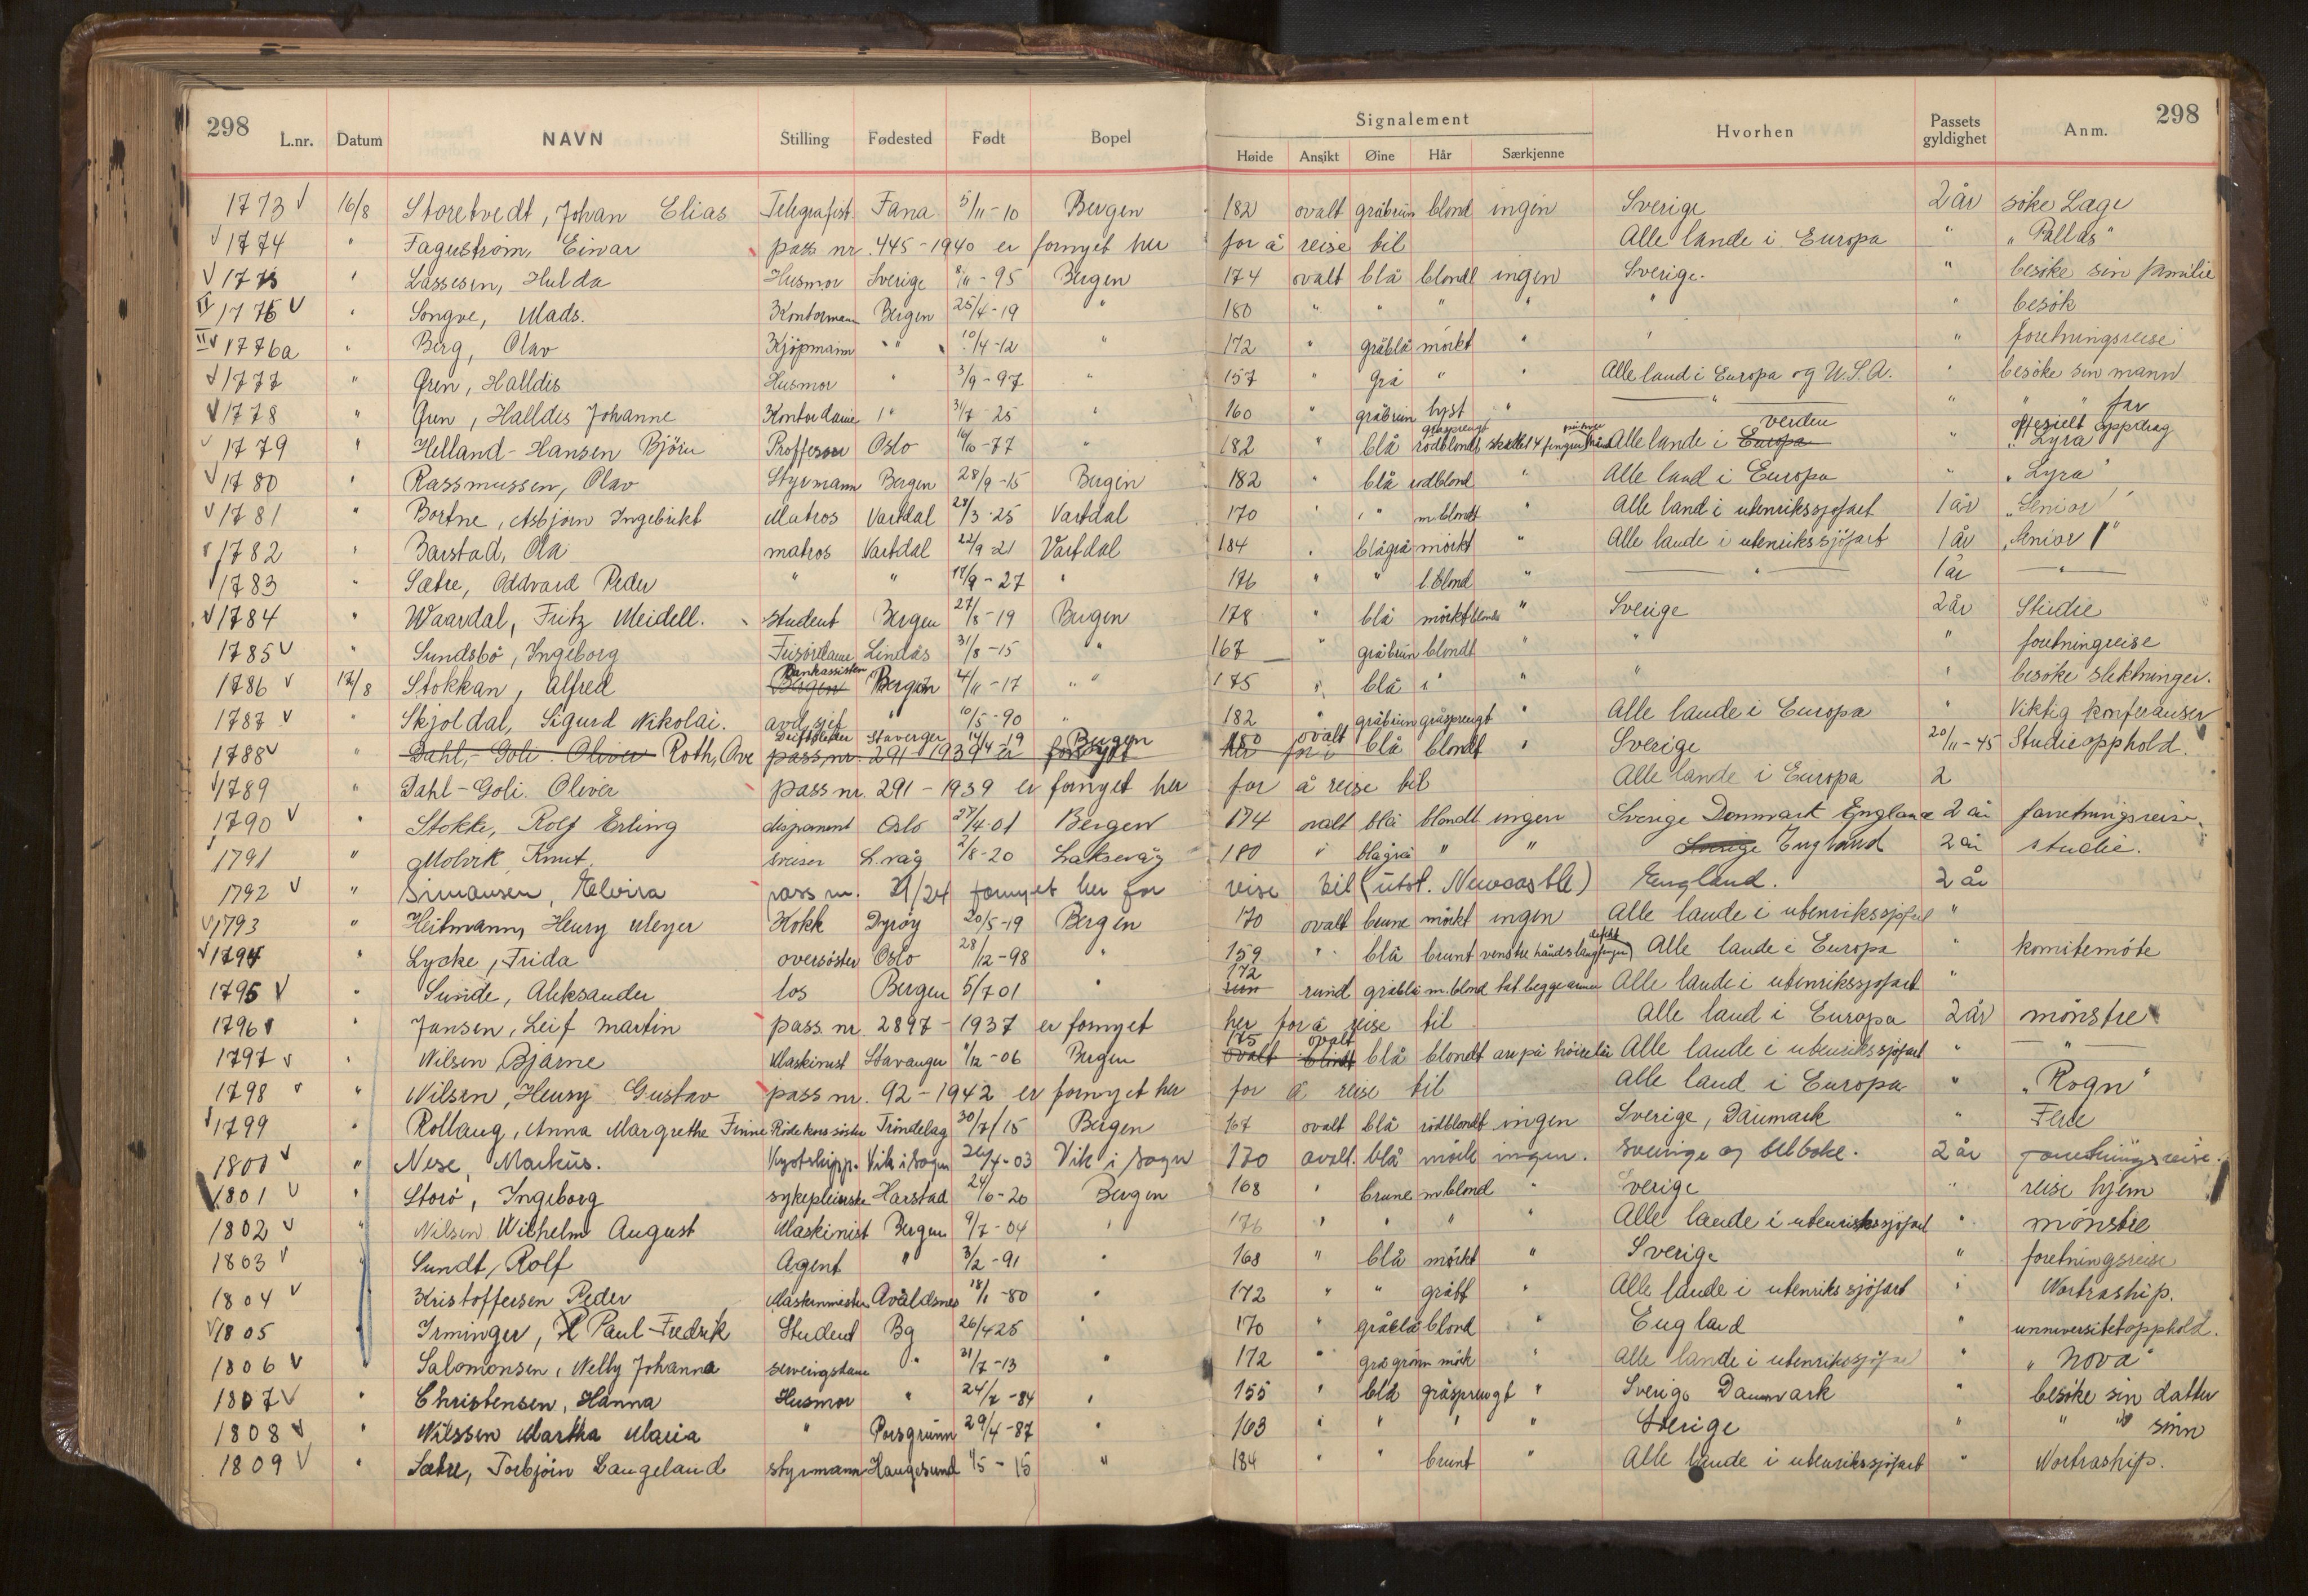 298 L.nr. Datum NAVN Stilling Fødested Født Bopel
Signalement
Høide Ansikt Øine Hår Særkjenne Hvorhen Passets gyldighet Anm. 298
1773 16/8 Storetvedt, Johan Elias Telegrafist Fana 5/11-10 Bergen 182 ovalt gråbrun blond ingen Sverige 2 år søke Lege
1774 " Faguström, Einar pass nr. 445-1940 er fornyet her for å reise til Alle lande i Europa " "Pallas"
1775 " Lassesen, Hulda Husmor Sverige 8/11-95 Bergen 174 ovalt blå blondt ingen Sverige. " besøke sin familie
1776 " Songve, Mads. Kontormann Bergen 25/4-19 " 180 " " " " " " besök
1776a " Berg, Olav Kjöpmann " 10/4-12 " 172 " gråblå mörkt " " " foretningsreise
1777 " Gren, Halldis Husmor " 3/9-97 " 157 " Grå " " Alle land i Europa og U.S.A. " besöke sin mann
1778 " Gren, Halldis Johanne Kontordame " 31/7-25 " 160 " gråbrun lyst " " " " " far
1779 " Helland-Hansen Björn Proffessor Oslo 16/10-77 " 182 " blå gråsprengt rödblondt Alle lande i Europa verden " offesielt oppdrag "Lyra"
1780 " Rassmussen, Olav Styrmann Bergen 28/9-15 Bergen 182 " blå rødblond " Alle land i Europa " "Lyra"
1781 " Bortne, Asbjørn Ingebrikt Matros Vartdal 28/3-25 Vartdal 170 " " m.blondt " Alle land i utenrikssjøfart 1 år "Senior"
1782 " Barstad, Ola matros Vartdal 22/9-21 Vartdal 184 " blågrå mörkt " Alle lande i utenrikssjöfart 1 år "Senior"
1783 " Sætre, Oddvard Peder " " 17/9-27 " 176 " " l.blond " " 1 år "
1784 " Waardal, Fritz Meidell. student Bergen 27/8-19 Bergen 178 " blå mörktblondt " Sverige 2 år Studie
1785 " Sundsbö, Ingeborg Frisördame Lindås 31/8-15 " 167 " gråbrun blondt " " " foretningreise
1786 17/8 Stokkan, Alfred Bergen Bankassisten Bergen 4/11-17 " 175 " blå " " " " besöke slektninger.
1787 " Skjoldal, Sigurd Nikolai. avd.sjef " 10/5-90 " 182 " gråbrun gråsprengt " Alle lande i Europa " Viktig konferanser
1788 " Dahl,-Goli. Oliver Roth, Ove pass nr. 291 1939 er fornyet Driftsleder Stavanger 14/4-19 Bergen her for å 180 ovalt blå blondt " Sverige 20/11-45 Studieopphold.
1789 " Dahl-Goli. Oliver pass nr. 291-1939 er fornyet her for å reise til Alle lande i Europa 2
1790 " Stokke, Rolf Erling disponent Oslo 27/4-01 Bergen 174 ovalt blå blondt ingen Sverige Danmark England 2 år forretningsreise
1791 " Knut. L.våg 2/8-20 Laksevåg 180 " blågrå " " Sverige England 2 år studie.
1792 " Simonsen, Elvira pass nr. 21/24 fornyet her for reise til (utst. Newcastle) England. 2 år
1793 " Heitmann, Henry Meyer Kokk Dyröy 20/5-19 Bergen 170 ovalt brune mörkt ingen Alle lande i utenrikssjøfart "
1794 " Lycke, Frida oversöster Oslo 28/12-98 " 159 " blå brunt venstre hånds langfinger defekt Alle lande i Europa " komitemöte
1795 " Sunde, Aleksander los Bergen 5/7 01 " 172 rund gråblå m.blond tat. begge armer Alle lande i utenrikssjøfart "
1796 " Jansen, Leif Martin pass. nr. 2897-1937 er fornyet her for å reise til Alle land i Europa 2 år mönstre
1797 " Nilsen Bjarne Maskinist Stavanger 11/12-06 Bergen ovalt blondt 175 ovalt blå blondt arr på höire Alle lande i utenrikssjøfart " "
1798 " Nilsen, Henry Gustav pass nr. 92-1942 er fornyet her for å reise til Alle land i Europa " "Rogn"
1799 " Rollaug, Anna Margrethe Finne Röde kors söster Tröndelag 30/7/15 Bergen 167 ovalt blå rödblondt ingen Sverige, Danmark " Ferie
1800 " Nese, Markus. Vik i Sogn 26/4-03 Vik i Sogn 170 ovalt. blå mörk ingen. sverige og tilbake. 2 år forretningsreise.
1801 " Storö, Ingeborg sykepleierske Harstad 24/6-20 Bergen 168 " brune m blond " Sverige " reise hjem
1802 " Nilsen Wilhelm August Maskinist Bergen 9/7-04 " 176 " " " " Alle lande i utenrikssjöfart " mönstre
1803 " Sundt, Rolf Agent " 3/2-91 " 168 " blå mörkt " Sverige " foretningsreise
1804 " Kristoffersen Peder Maskinmester Avaldsnes 18/1-80 " 172 " " grått " Alle lande i utenriks sjöfart " Nortraship.
1805 " Irminger, Paul-Fredrik Student Bg 26/4 25 " 170 " gråblå blond " England " unniversitetopphold.
1806 " Salomonsen, Nelly Johanna serveringsdame " 21/7-13 " 172 " grå grönn mörk " Alle lande i utenrikssjöfart " "Nova"
1807 " Christensen, Hanna Husmor " 24/7-84 " 155 " blå gråsprengt " Sverige Danmark " besöke sin datter
1808 " Nilssen Martha Maria " Porsgrunn 29/4-87 " 163 " " " " Sverige " " " sönn
1809 " Sætre, Torbjörn Langeland styrmann Haugesund 11/5-15 " 184 " " brunt " Alle lande i utenrikssjøfart " Nortraship.